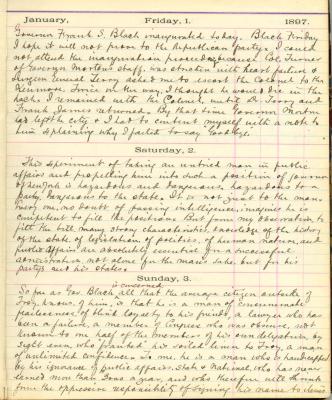 January, Friday, 1. 1897.
Governor Frank S. Black inaugurated today. Black Friday
I hope it will not prove to the Republican party. I could
not attend the inauguration proceedings because Col. Turner
of Governor Morton's staff, was stricken with heart failure &
Surgeon General Terry asked me to escort the Colonel to the
Kenmore. Twice on the way, I thought he would die in the
hack. I remained with the Colonel, until Dr. Terry and
Frank James returned. By that time Governor Morton
had left the city & I had to content myself with a note to
him explaining why I failed to say "Good bye."
Saturday, 2.
This experiment of taking an untried man in public
affairs and propelling him into such a position of governor
of New York is hazardous and dangerous, hazardous to a
party, dangerous to the state. It is not just to the man.
Many one, no doubt of passing intelligence, imagine he is
competent to fill the position. But from my observation to
fill the bill many strong characteristics, knowledge of the history
of the state, of legislation, of politics, of human nature, and
public affairs are absolutely essential for a successful
administration, not alone for the man's sake, but for his
party's and his state's.
Sunday, 3.
is concerned
So far as Gov. Black all that the average citizen outside of
Troy, knows of him, is that he is a man of
fearlessness, of blind loyalty to his friends, a lawyer who has
been a failure, a member of Congress who was obscure, not
known to one half of the members of his own delegation, by
sight even, who "franked" his soiled linen to Troy, a man
of unlimited confidence. To me, he is a man who is handicapped
by his ignorance of public affairs, State & National, who has never
earned more than $ a year, and who therefore will shrink
from the oppressive responsibility of signing his name to items